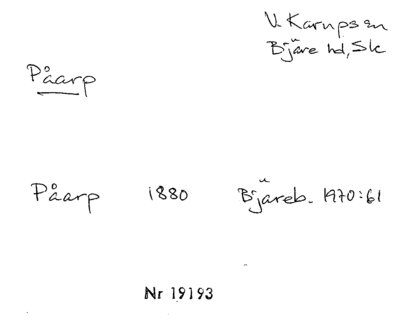 V. Karups sn
Bjäre hd, Sk
Påarp
Påarp 1880 Bjäreb. 1970:61
Nr 19193